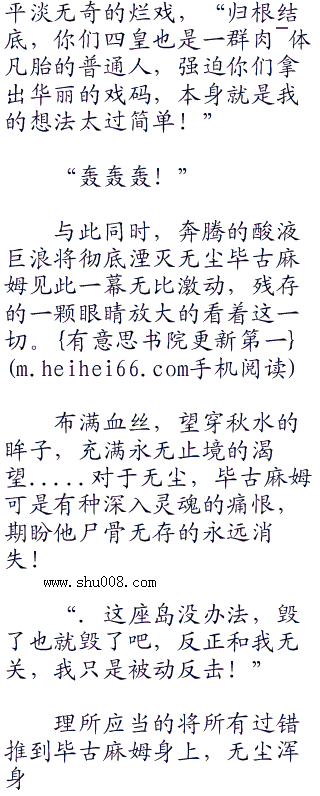 平淡无奇的烂戏，“归根结
底，你们四皇也是一群肉¯体
凡胎的普通人，强迫你们拿
出华丽的戏码，本身就是我
的想法太过简单！”
“轰轰轰！”
与此同时，奔腾的酸液
巨浪将彻底湮灭无尘毕古麻
姆见此一幕无比激动，残存
的一颗眼睛放大的看着这一
切。{有意思书院更新第一}
(m.heihei66.com手机阅读)
布满血丝，望穿秋水的
眸子，充满永无止境的渴
望.....对于无尘，毕古麻姆
可是有种深入灵魂的痛恨，
期盼他尸骨无存的永远消
失！
www.shu008.com
“．这座岛没办法，毁
了也就毁了吧，反正和我无
关，我只是被动反击！”
理所应当的将所有过错
推到毕古麻姆身上，无尘浑
身